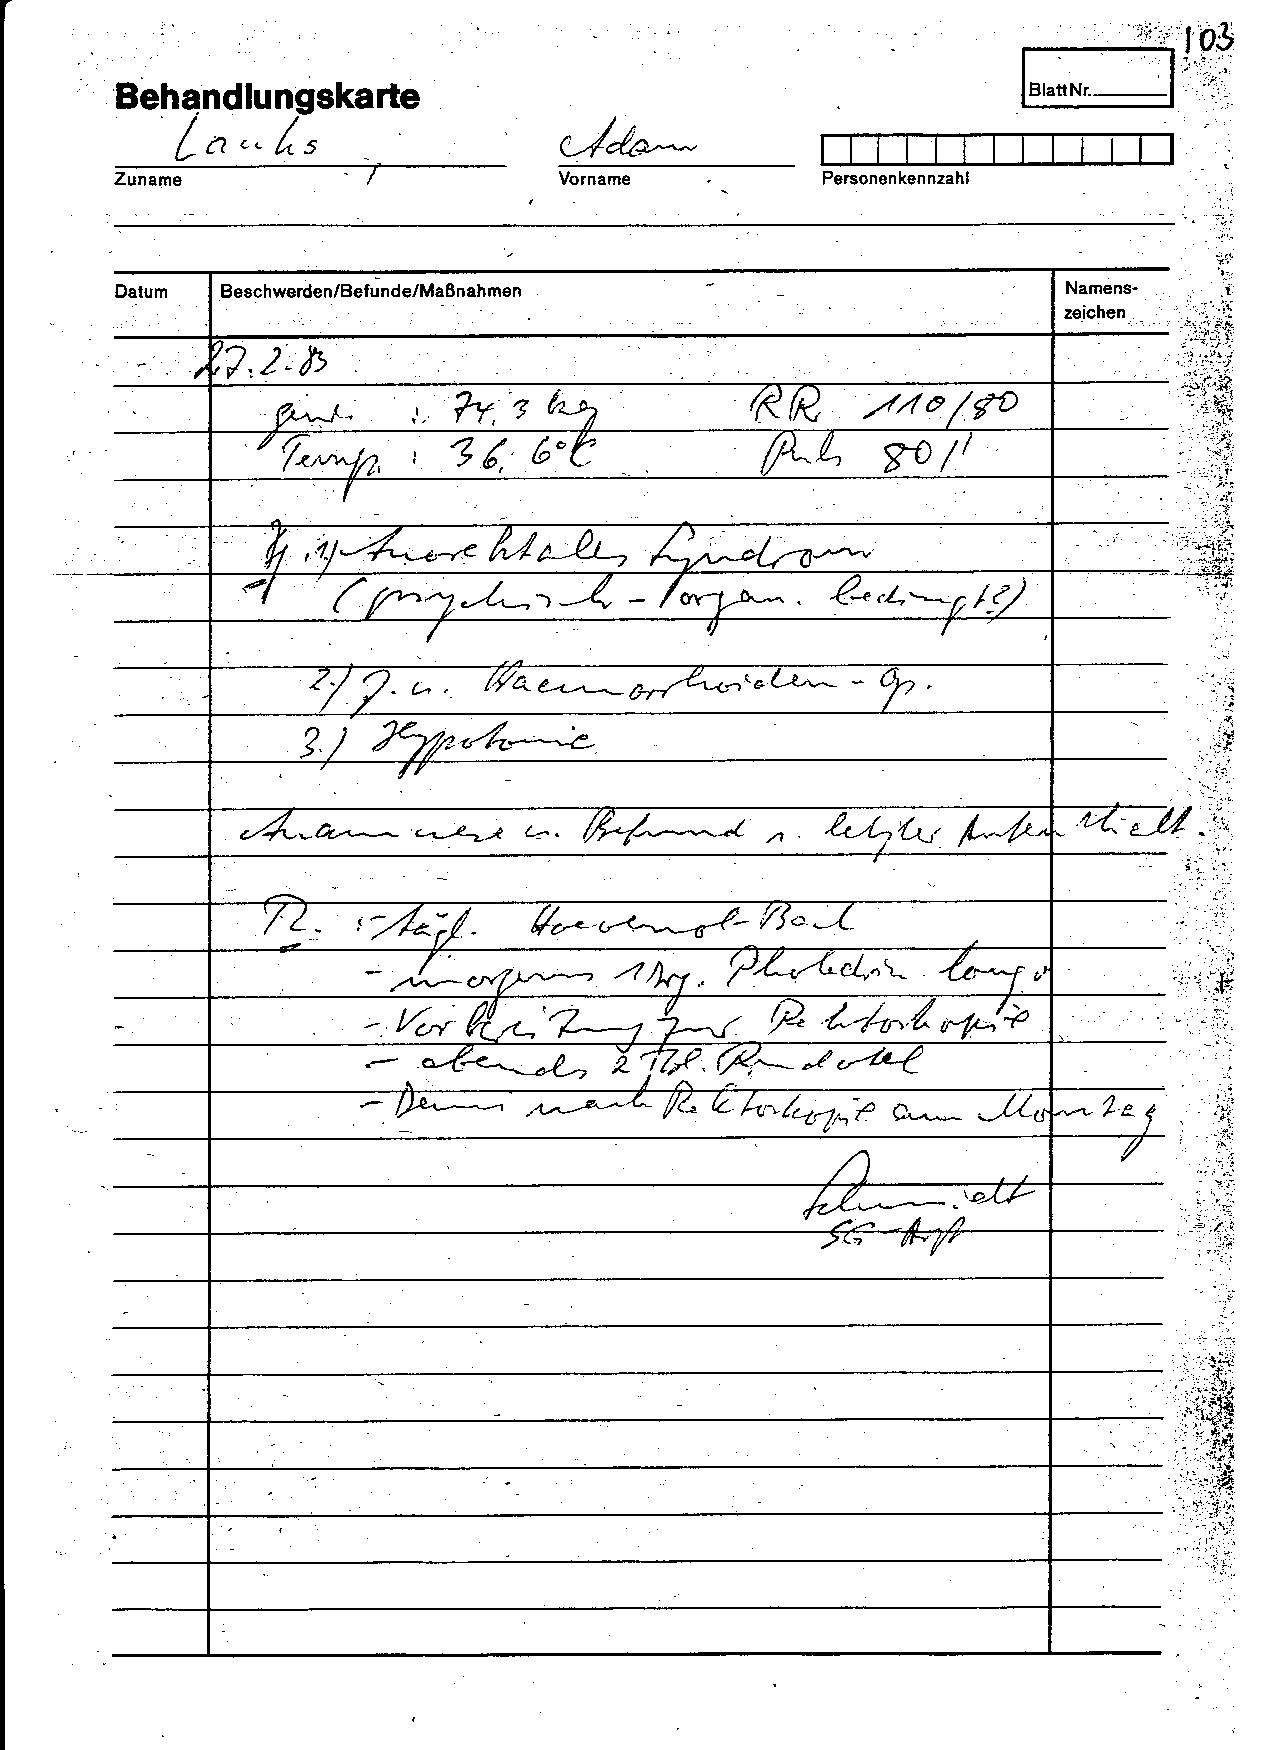 103
Behandlungskarte
Blatt Nr.
Lauks Adam
Zuname Vorname Personenkennzahl
Datum Beschwerden/Befunde/Maßnahmen Namens-
zeichen
27.2.83
: 74,3 kg RR 110/80
Temp. : 36,6°C Puls 80/'
1) Anorektales Syndrom
(psychisch-/organ. bedingt?)
2.) Z.n. Haemorrhoiden-Op.
3.) Hypotonie
Anamnese u. Befund s. letzter Aufenthalt.
Th. :- tägl. Bad
- morgens 1 Drg. Pholedrin longo
- Vorbereitung zur Rektoskopie
- abends 2 Tbl.
- nach Rektoskopie am Montag
Schmidt
SG-Arzt